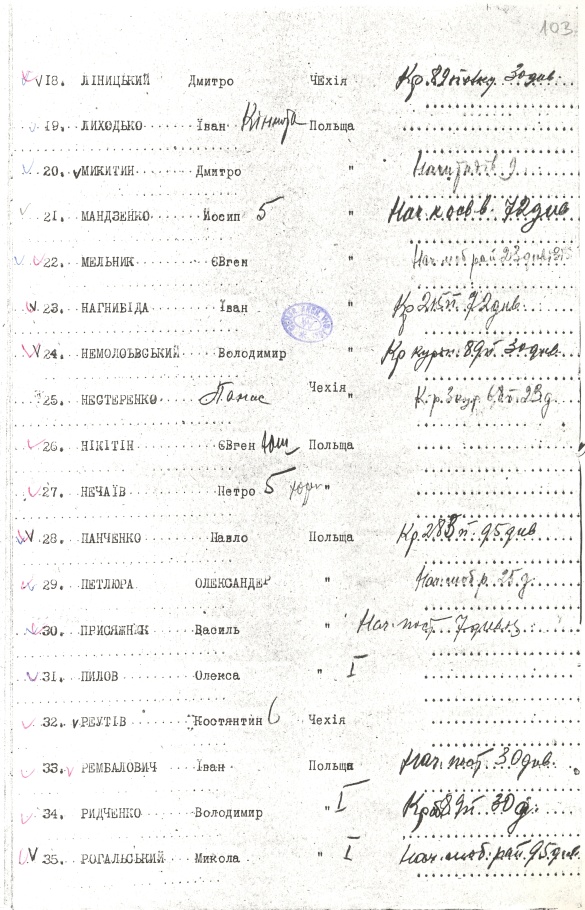 103
18. ЛІНИЦЬКИЙ Дмитро Чехія Кр. 89 30 днв.
19. ЛИХОДЬКО Їван Кіннота Польща
20. МИКИТИН Дмитро "
21. МАНДЗЕНКО Йосип 5 " Нач. 72 див
22. МЕЛЬНИК ЄВген " Нач. моб рай 23 див.
23. НАГНИБІДА Їван " Кр 215 п. 72 див.
24. НЕМОЛОЪВСЬКИЙ Володимир " Кр 89 п. 30 див.
25. НЕСТЕРЕНКО Панас Чехія " 68 п. 23 д.
26. НІКІТІН ЄВген Польща
27. НЕЧАЇВ Петро 5 "
28. ПАНЧЕНКО Павло Польща Кр. 283 п. 95 див
29. ПЕТЛЮРА ОЛЕКСАНДЕР " Нач. моб. р. 25 д.
30. ПРИСЯЖНЮК Василь " Нач. пост. 7
31. ПИЛОВ Олекса " I
32. РЕУТІВ Костянтин 6 Чехія
33. РЕМБАЛОВИЧ Їван Польща Нач. пост. 30 див.
34. РИДЧЕНКО Володимир " I Кр 89 п. 30 д.
35. РОГАЛЬСЬКИЙ Микола " I Нач. моб. рай. 95 див.